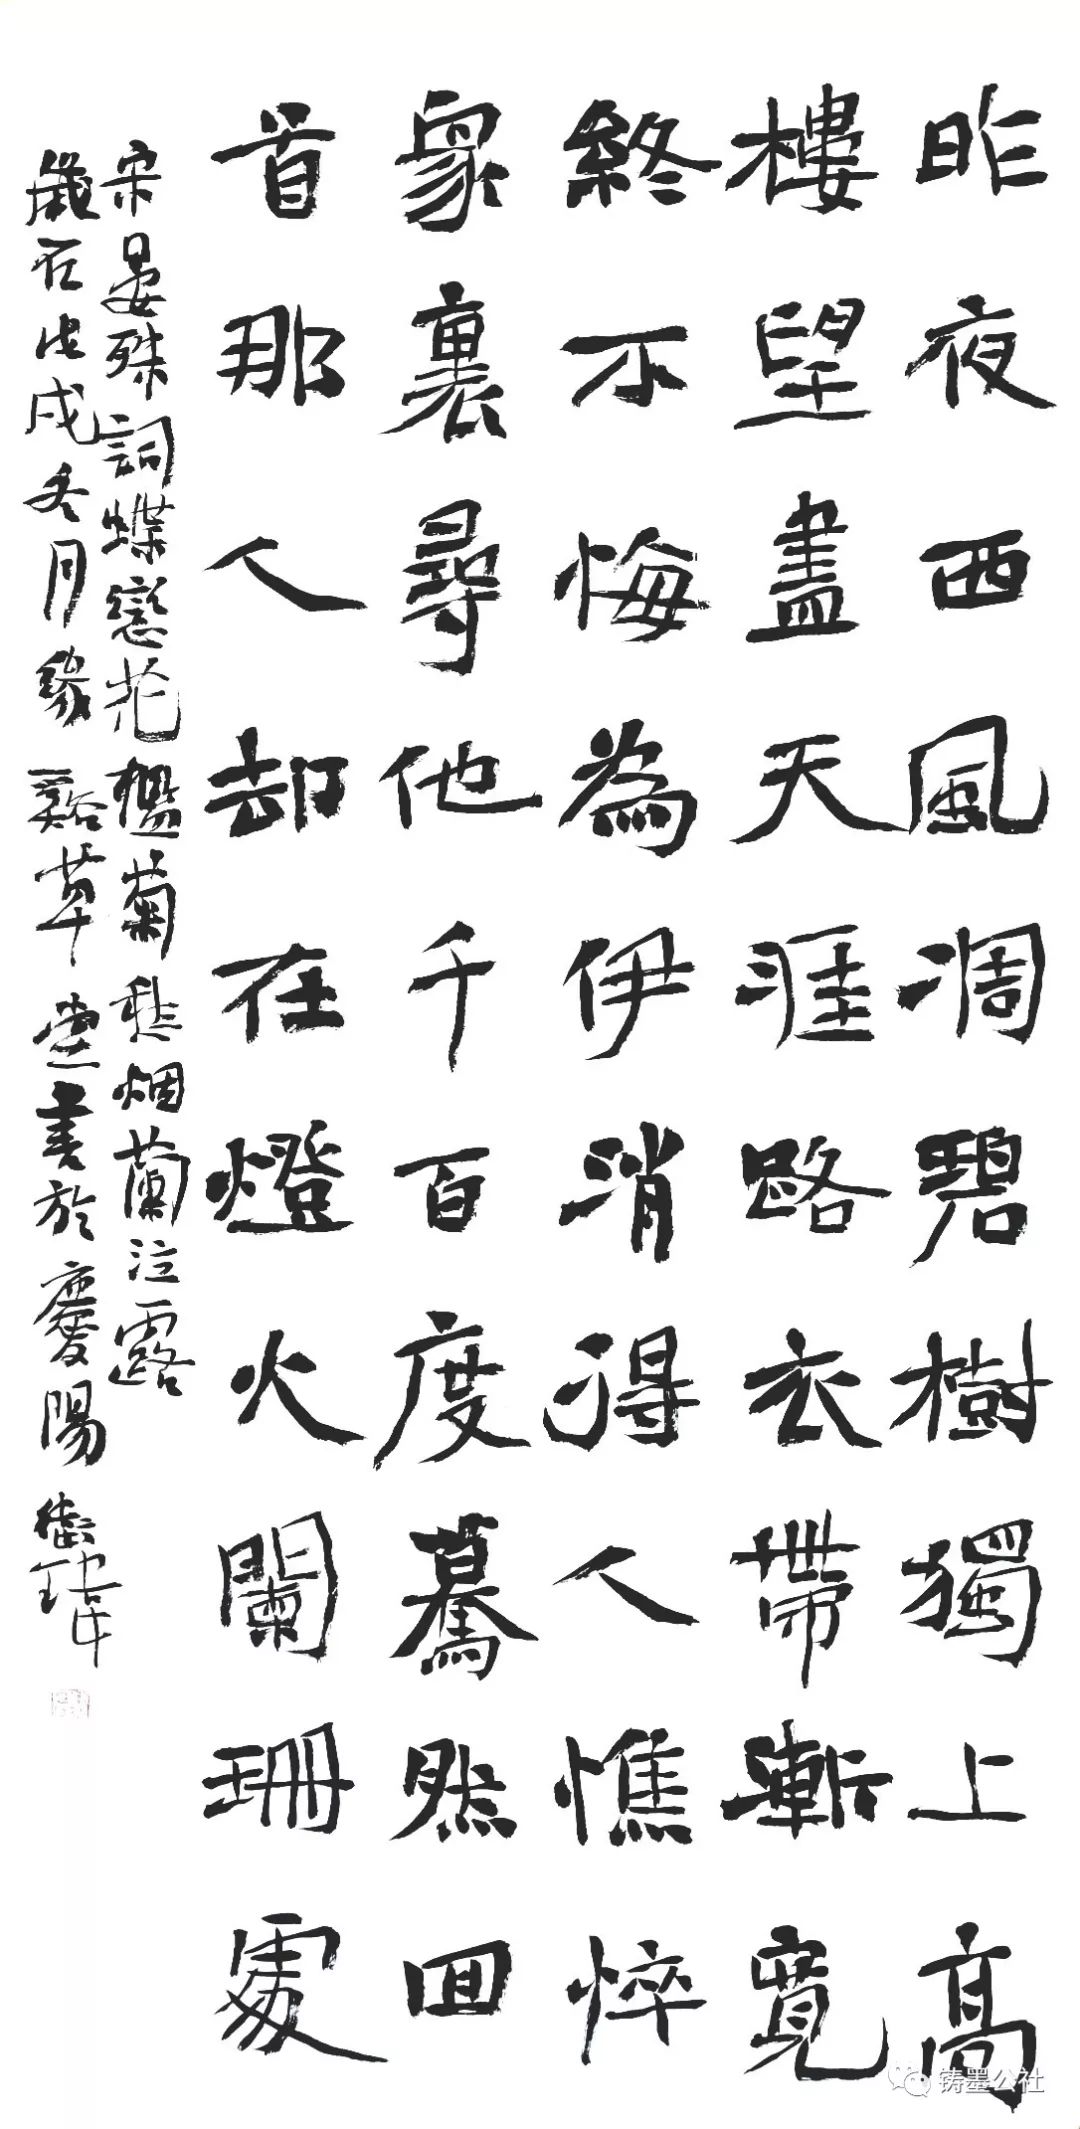 昨夜西風凋碧樹獨上高
樓望盡天涯路衣帶漸寬
終不悔為伊消得人憔悴
眾裏尋他千百度驀然回
首那人却在燈火闌珊處
宋晏殊詞蝶戀花檻菊愁烟蘭泣露
歲在戊戌冬月 草堂書於慶陽
铸墨公社